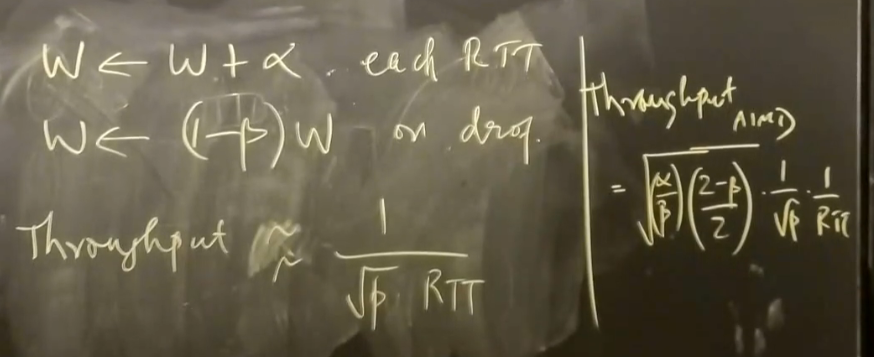 W ← W + α each RTT
W ← (1-β)W on drop.
Throughput ≈ 1/(√p RTT)
Throughput AIMD
= √((α/β)((2-β)/2)) · 1/√p · 1/RTT